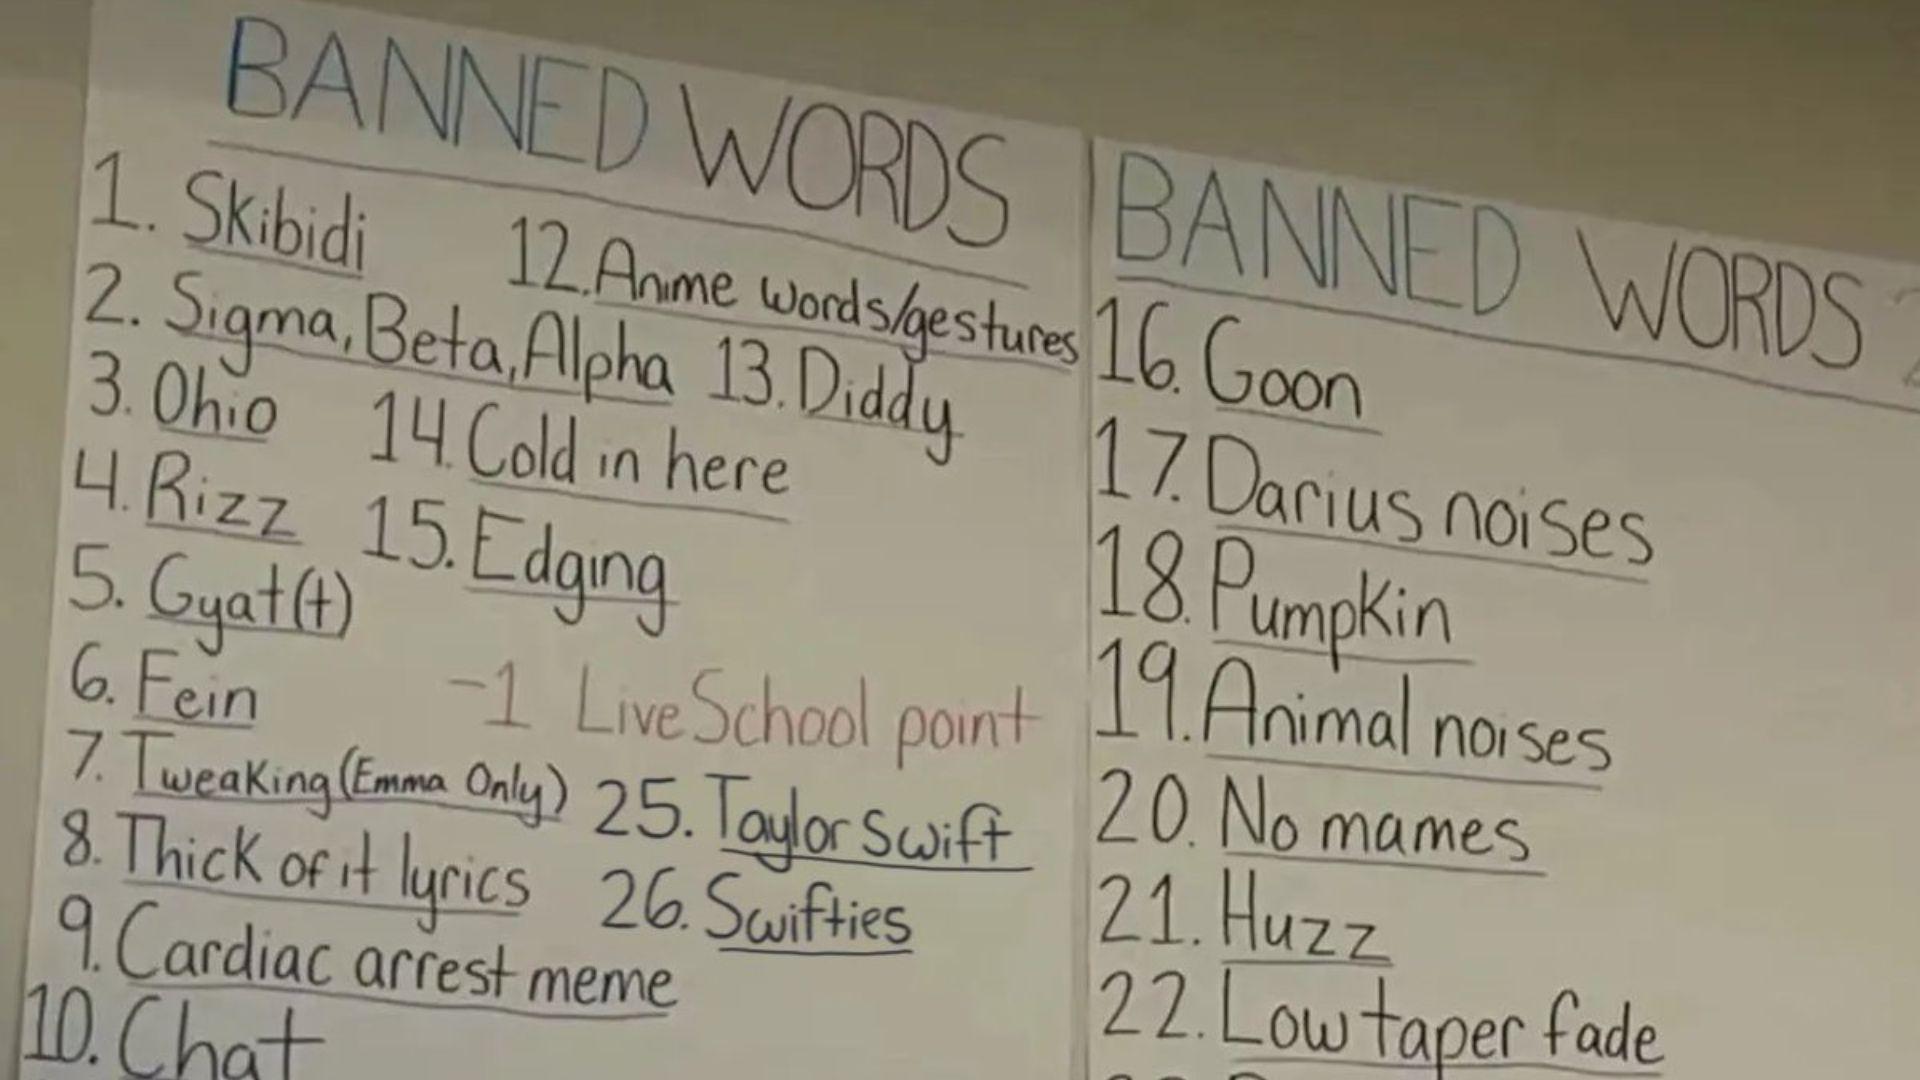 BANNED WORDS
1. Skibidi
2. Sigma, Beta, Alpha
3. Ohio
4. Rizz
5. Gyat(t)
6. Fein
7. Tweaking (Emma Only)
8. Thick of it lyrics
9. Cardiac arrest meme
10. Chat
12. Anime words/gestures
13. Diddy
14. Cold in here
15. Edging
-1 LiveSchool point
25. Taylor Swift
26. Swifties
BANNED WORDS 2
16. Goon
17. Darius noises
18. Pumpkin
19. Animal noises
20. No mames
21. Huzz
22. Low taper fade